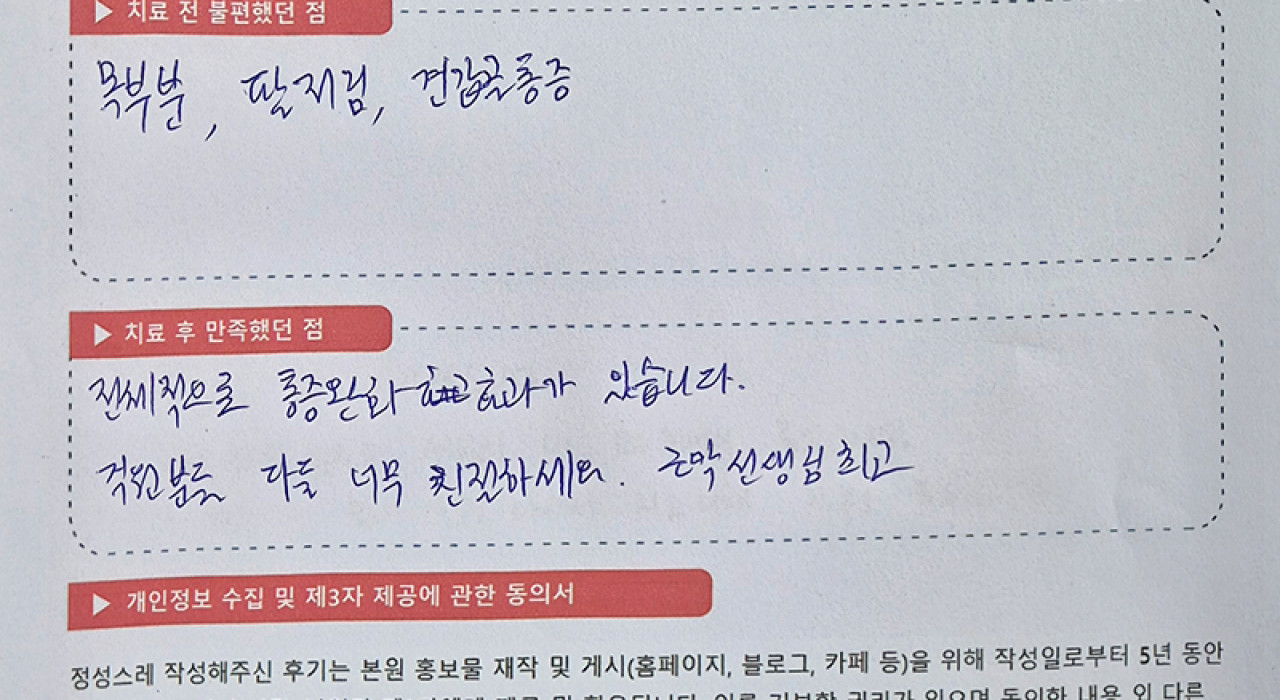 ▶ 치료 전 불편했던 점
목부분, 팔저림, 견갑골통증
▶ 치료 후 만족했던 점
전체적으로 통증완화 효과가 있습니다.
직원분들 다들 너무 친절하세요. 근막선생님 최고
▶ 개인정보 수집 및 제3자 제공에 관한 동의서
정성스레 작성해주신 후기는 본원 홍보물 재작 및 게시(홈페이지, 블로그, 카페 등)을 위해 작성일로부터 5년 동안
거부할 권리가 있으며 동의한 내용 외 다른